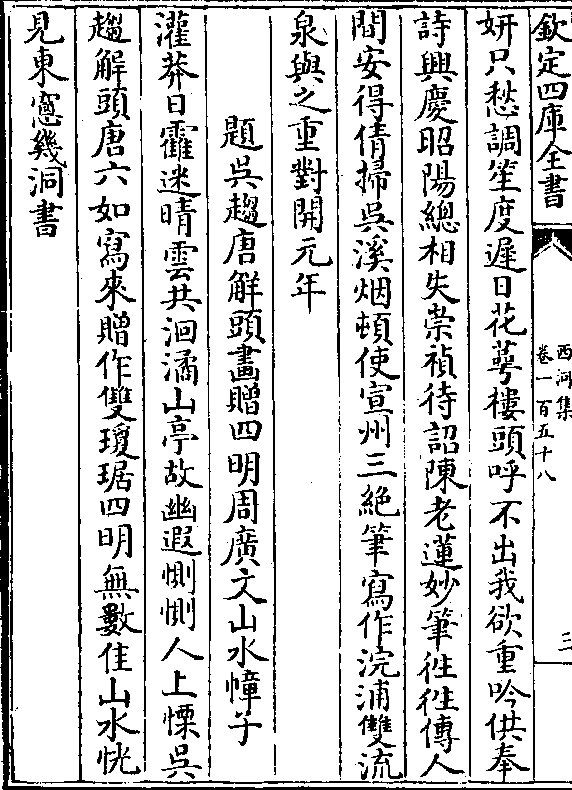 欽定四庫全書
西河集
卷一百五十八
三
妍只愁調笙度遲日花萼樓頭呼不出我欲重吟供奉
詩興慶昭陽總相失崇禎待詔陳老蓮妙筆往往傳人
間安得倩掃吳溪烟頓使宣州三絶筆寫作浣浦雙流
泉與之重對開元年
題吳趨唐解頭畫贈四明周廣文山水幛子
灌莽日霾迷晴雲共洄潏山亭故幽遐惻惻人上慄吳
趨解頭唐六如寫來贈作雙瓊琚四明無數佳山水恍
見東窻幾洞書